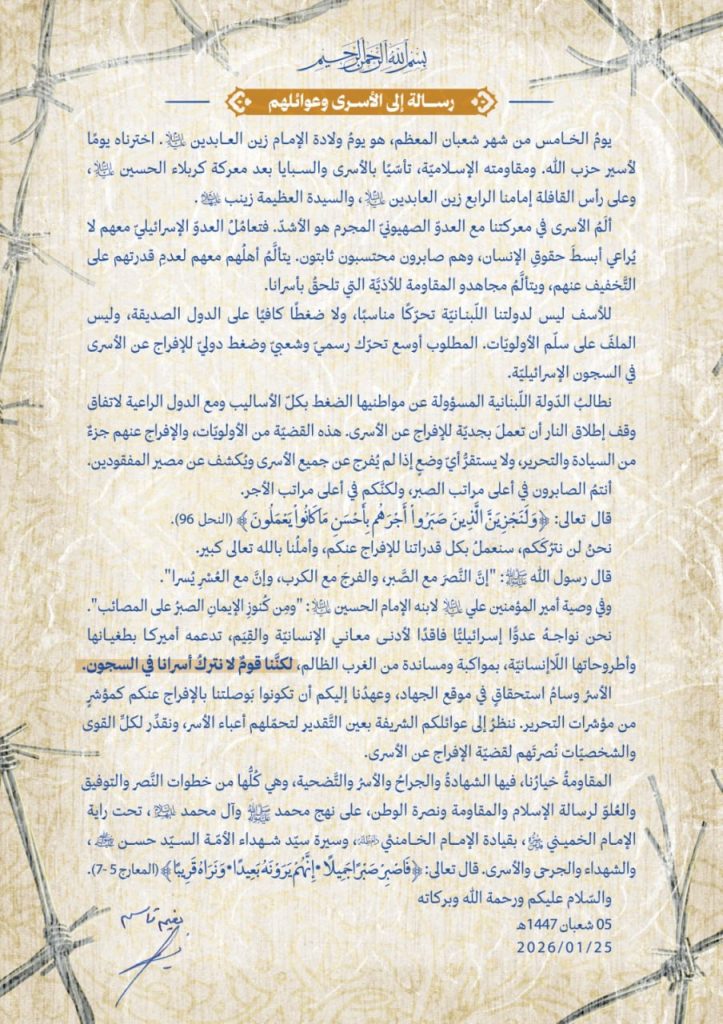 بسم الله الرحمن الرحيم
رسالة إلى الأسرى وعوائلهم
يومُ الخامس من شهر شعبان المعظم، هو يومُ ولادة الإمام زين العابدين عليه السلام. اخترناه يومًا
لأسير حزب الله. ومقاومته الإسلاميّة، تأسّيًا بالأسرى والسبايا بعد معركة كربلاء الحسين عليه السلام،
وعلى رأس القافلة إمامنا الرابع زين العابدين عليه السلام، والسيدة العظيمة زينب.
ألمُ الأسرى في معركتنا مع العدوّ الصهيونيّ المجرم هو الأشدّ. فتعامُلُ العدوّ الإسرائيليّ معهم لا
يُراعي أبسطَ حقوقِ الإنسان، وهم صابرون محتسبون ثابتون. يتألَّمُ أهلُهم معهم لعدمِ قدرتهم على
التَّخفيف عنهم، ويتألَّمُ مجاهدو المقاومة للأذيَّة التي تلحقُ بأسرانا.
للأسف ليس لدولتنا اللّبنانيّة تحرّكًا مناسبًا، ولا ضغطًا كافيًا على الدول الصديقة، وليس
الملفّ على سلّم الأولويّات. المطلوب أوسع تحرّك رسميّ وشعبيّ وضغط دوليّ للإفراج عن الأسرى
في السجون الإسرائيليّة.
نطالبُ الدّولة اللّبنانية المسؤولة عن مواطنيها الضغط بكلّ الأساليب ومع الدول الراعية لاتفاق
وقف إطلاق النار أن تعملَ بجديّة للإفراج عن الأسرى. هذه القضيّة من الأولويّات، والإفراج عنهم جزءٌ
من السيادة والتحرير، ولا يستقرُّ أيّ وضعٍ إذا لم يُفرج عن جميع الأسرى ويُكشف عن مصير المفقودين.
أنتمُ الصابرون في أعلى مراتب الصبر، ولكنَّكم في أعلى مراتب الأجر.
قال تعالى: ﴿وَلَنَجْزِيَنَّ الَّذِينَ صَبَرُواْ أَجْرَهُم بِأَحْسَنِ مَا كَانُواْ يَعْمَلُونَ﴾ (النحل 96).
نحنُ لن نترُكَكم، سنعملُ بكل قدراتنا للإفراج عنكم، وأملُنا بالله تعالى كبير.
قال رسول الله ﷺ: "إنَّ النَّصرَ مع الصَّبر، والفرجَ مع الكرب، وإنَّ مع العُسْرِ يُسرا".
وفي وصية أمير المؤمنين علي عليه السلام لابنه الإمام الحسين عليه السلام: "ومِن كُنوزِ الإيمانِ الصبرُ على المصائب".
نحن نواجهُ عدوًّا إسرائيليًّا فاقدًا لأدنى معاني الإنسانيّة والقِيَم، تدعمه أميركا بطغيانها
وأطروحاتها اللّاإنسانيّة، بمواكبة ومساندة من الغرب الظالم، لكنَّنا قومٌ لا نتركُ أسرانا في السجون.
الأسرُ وسامُ استحقاقٍ في موقع الجهاد، وعهدُنا إليكم أن تكونوا بَوصلتنا بالإفراج عنكم كمؤشرٍ
من مؤشرات التحرير. ننظرُ إلى عوائلكم الشريفة بعين التَّقدير لتحمّلهم أعباء الأسر، ونقدِّر لكلِّ القوى
والشخصيّات نُصرتَهم لقضيّة الإفراج عن الأسرى.
المقاومةُ خيارُنا، فيها الشهادةُ والجراحُ والأسرُ والتَّضحية، وهي كُلُّها من خطوات النَّصر والتوفيق
والعُلوّ لرسالة الإسلام والمقاومة ونصرة الوطن، على نهج محمد ﷺ وآل محمد، تحت راية
الإمام الخميني، بقيادة الإمام الخامنئي، وسيرة سيّد شهداء الأمّة السيّد حسن،
والشهداء والجرحى والأسرى. قال تعالى: ﴿فَاصْبِرْ صَبْرًا جَمِيلًا • إِنَّهُمْ يَرَوْنَهُ بَعِيدًا • وَنَرَاهُ قَرِيبًا﴾ (المعارج 5-7).
والسّلام عليكم ورحمة الله وبركاته
05 شعبان 1447هـ
2026/01/25
نعيم قاسم